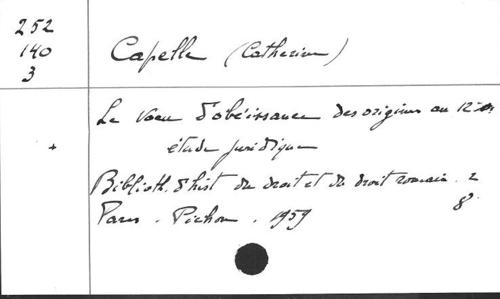 252
140
3
Capelle (Catherine)
Le voeu d'obéissance des origines au 12e s.
+
étude juridique
Biblioth. d'hist. du droit et du droit romain. 2
Paris. Pichon. 1959
8°